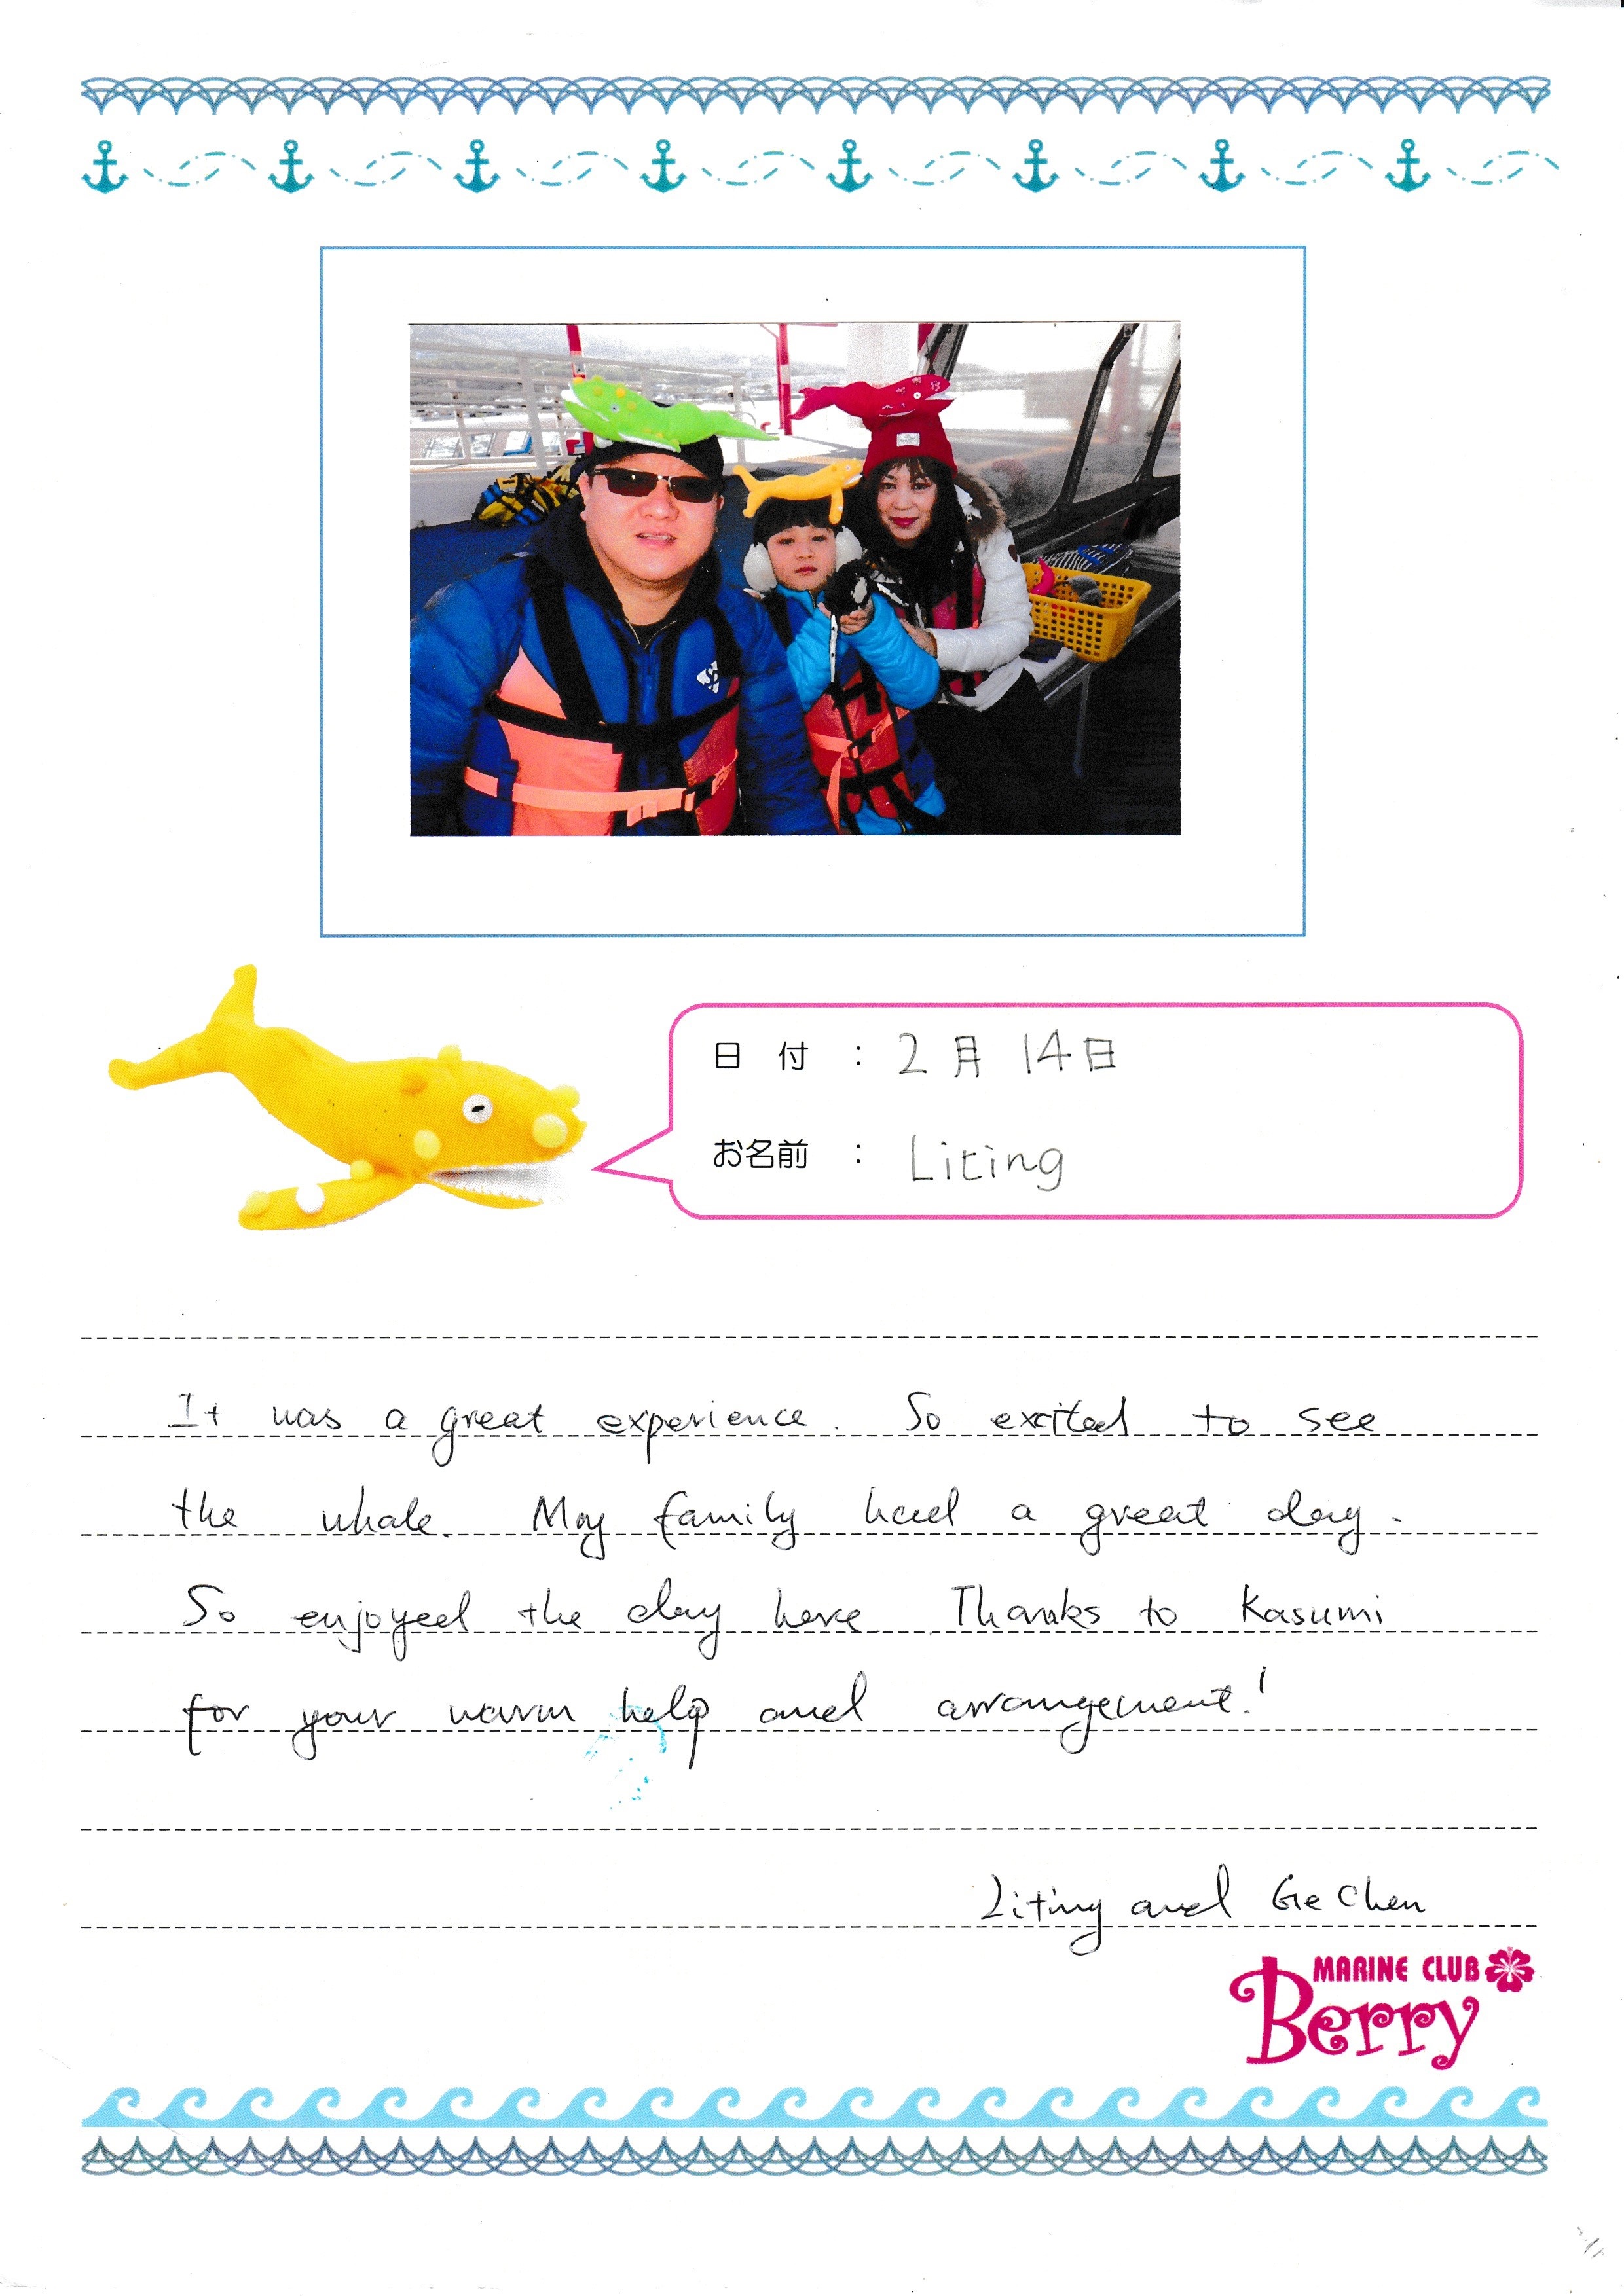 日 付 : 2月 14日
お名前 : Liting
It was a great experience. So excited to see
the whale. My family had a great day.
So enjoyed the day here. Thanks to Kasumi
for your warm help and arrangement!
Liting and Ge Chen
MARINE CLUB
Berry